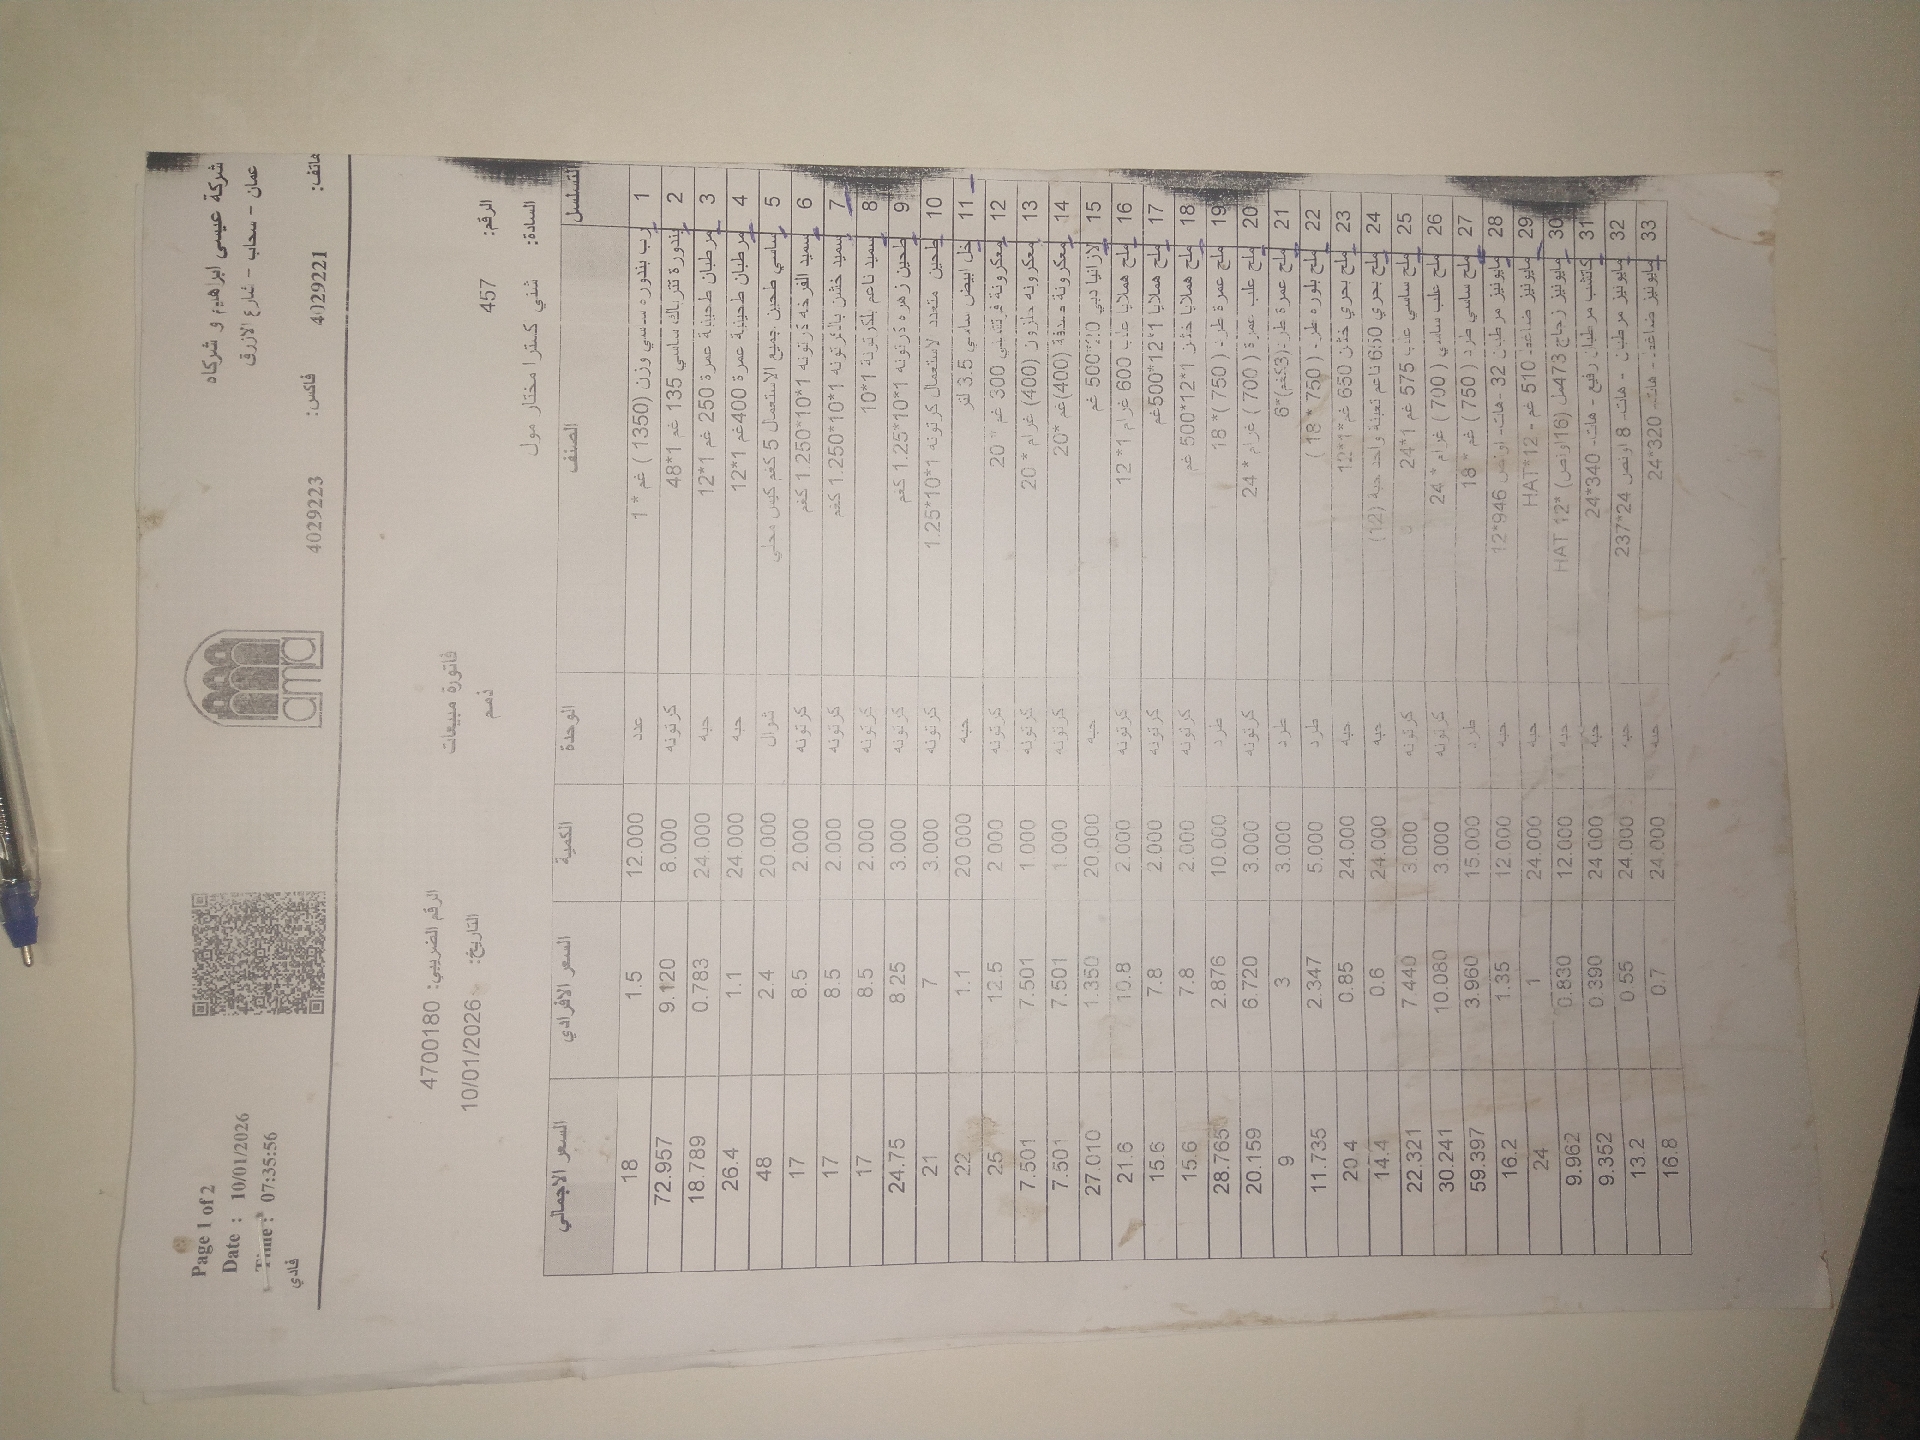 Page 1 of 2
Date : 10/01/2026
Time : 07:35:56
فادي
شركة عيسى ابراهيم و شركاه
عمان - سحاب - شارع الازرق
هاتف: 4029221 فاكس: 4029223
amra
فاتورة مبيعات
ذمم
الرقم: 457
الرقم الضريبي: 4700180
التاريخ: 10/01/2026
السادة: شني كسترا مختار مول
التسلسل الصنف الوحدة الكمية السعر الافرادي السعر الاجمالي
1 رب بندوره ساسي وزن (1350 ) غم *1 عدد 12.000 1.5 18
2 بندورة تتراباك ساسي 135 غم 1*48 كرتونه 8.000 9.120 72.957
3 مرطبان طحينية عمرة 250 غم 1*12 حبه 24.000 0.783 18.789
4 مرطبان طحينية عمرة 400غم 1*12 حبه 24.000 1.1 26.4
5 ساسي طحين جميع الاستعمال 5 كغم كيس محلي شوال 20.000 2.4 48
6 سميد الفرخه كرتونه 1*10*1.250 كغم كرتونه 2.000 8.5 17
7 سميد خشن بالكرتونه 1*10*1.250 كغم كرتونه 2.000 8.5 17
8 سميد ناعم بلكرتونة 1*10 كرتونه 2.000 8.5 17
9 طحين زهره كرتونه 1*10*1.25 كغم كرتونه 3.000 8.25 24.75
10 طحين متعدد لاستعمال كرتونه 1*10*1.25 كرتونه 3.000 7 21
11 خل ابيض ساسي 3.5 لتر حبه 20.000 1.1 22
12 معكرونة فرتشيني 300 غم * 20 كرتونه 2.000 12.5 25
13 معكرونه حلزون (400) غرام * 20 كرتونه 1.000 7.501 7.501
14 معكرونة صدفة (400)غم *20 كرتونه 1.000 7.501 7.501
15 لازانيا دبي 500 غم حبه 20.000 1.350 27.010
16 ملح هملايا علب 600 غرام 1* 12 كرتونه 2.000 10.8 21.6
17 ملح هملايا 1*12*500غم كرتونه 2.000 7.8 15.6
18 ملح هملايا خشن 1*12*500 غم كرتونه 2.000 7.8 15.6
19 ملح عمرة طرد ( 750 )* 18 طرد 10.000 2.876 28.765
20 ملح علب عمرة ( 700 ) غرام * 24 كرتونه 3.000 6.720 20.159
21 ملح عمرة طرد (3كغم)*6 طرد 3.000 3 9
22 ملح بلوره طرد ( 750 * 18 ) طرد 5.000 2.347 11.735
23 ملح بحري خشن 650 غم*1*12 حبه 24.000 0.85 20.4
24 ملح بحري 650 ناعم تعبئة واحد حبة (12) حبه 24.000 0.6 14.4
25 ملح ساسي علب 575 غم 1*24 كرتونه 3.000 7.440 22.321
26 ملح علب ساسي ( 700 ) غرام * 24 كرتونه 3.000 10.080 30.241
27 ملح ساسي طرد ( 750 ) غم * 18 طرد 15.000 3.960 59.397
28 مايونيز مرطبن 32 -هات- اونص 946*12 حبه 12.000 1.35 16.2
29 مايونيز ضاغط 510 غم -12*HAT حبه 24.000 1 24
30 مايونيز زجاج 473مل (16اونص) *12 HAT حبه 12.000 0.830 9.962
31 كاتشب مرطبان رفيع - هات- 340*24 حبه 24.000 0.390 9.352
32 مايونيز مرطبن - هات- 8 اونص 24*237 حبه 24.000 0.55 13.2
33 مايونيز ضاغط - هات- 320*24 حبه 24.000 0.7 16.8